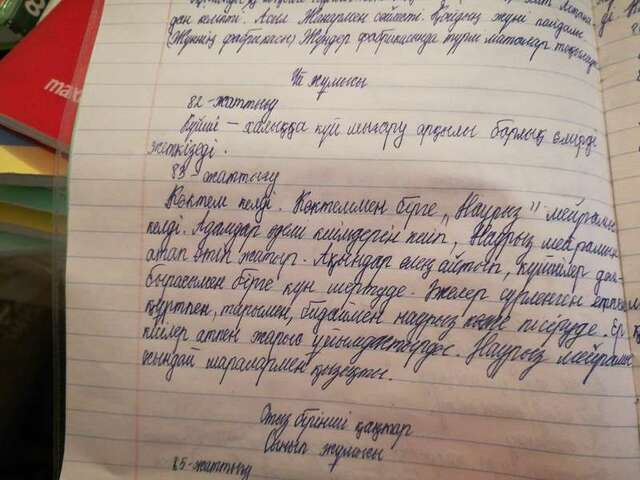 дан келіпті. Асыл Жанармен сөйлеті. Қойдың жүні пайдалы.
(Жүннің фабрикасы) Жүндер фабрикасында түрлі маталар тоқылады
Үй жұмысы
82-жаттығу
Күйші – халыққа күй шығару арқылы барлық өмірді
жеткізеді.
83-жаттығу
Көктем келді. Көктеммен бірге „Наурыз" мейрамы
келді. Адамдар әдемі киімдерін киіп, Наурыз мейрамын
атап өтіп жатыр. Ақындар өлең айтып, күйшілер дом-
бырасымен бірге күй шертуде. Әжелер сүрленген етпен
құртпен, тарымен, бидаймен наурыз көже пісіруде. Ер
кісілер атпен жарыс ұйымдастырды. Наурыз мейрамы
осындай шаралармен қызықты.
Отыз бірінші қаңтар
Сынып жұмысы
85-жаттығу